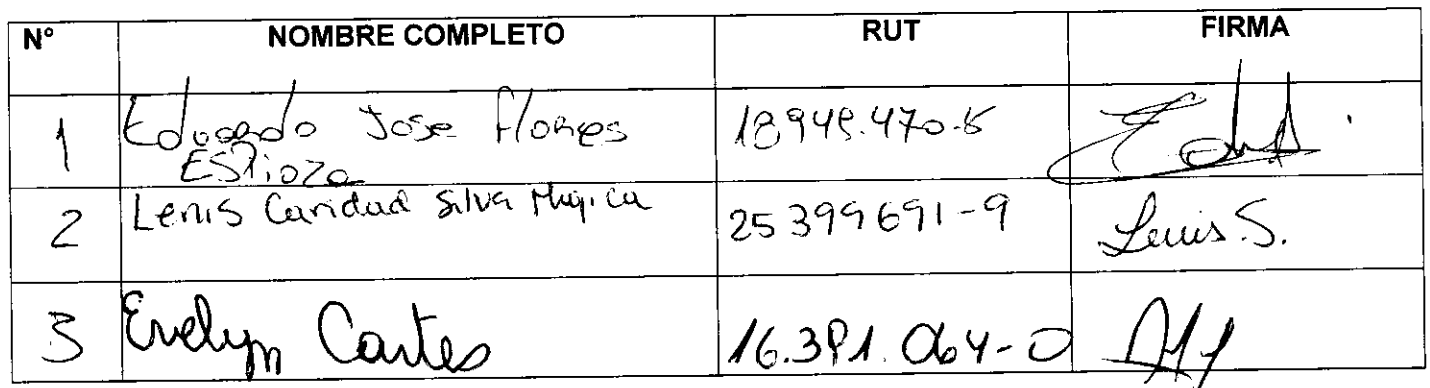 N° NOMBRE COMPLETO RUT FIRMA
1 Eduardo Jose Flores 18948.470-5
2 Lenis Caridad Silva Mujica 25399691-9 Lenis.S.
3 Evelyn Cartes 16.381.064-0